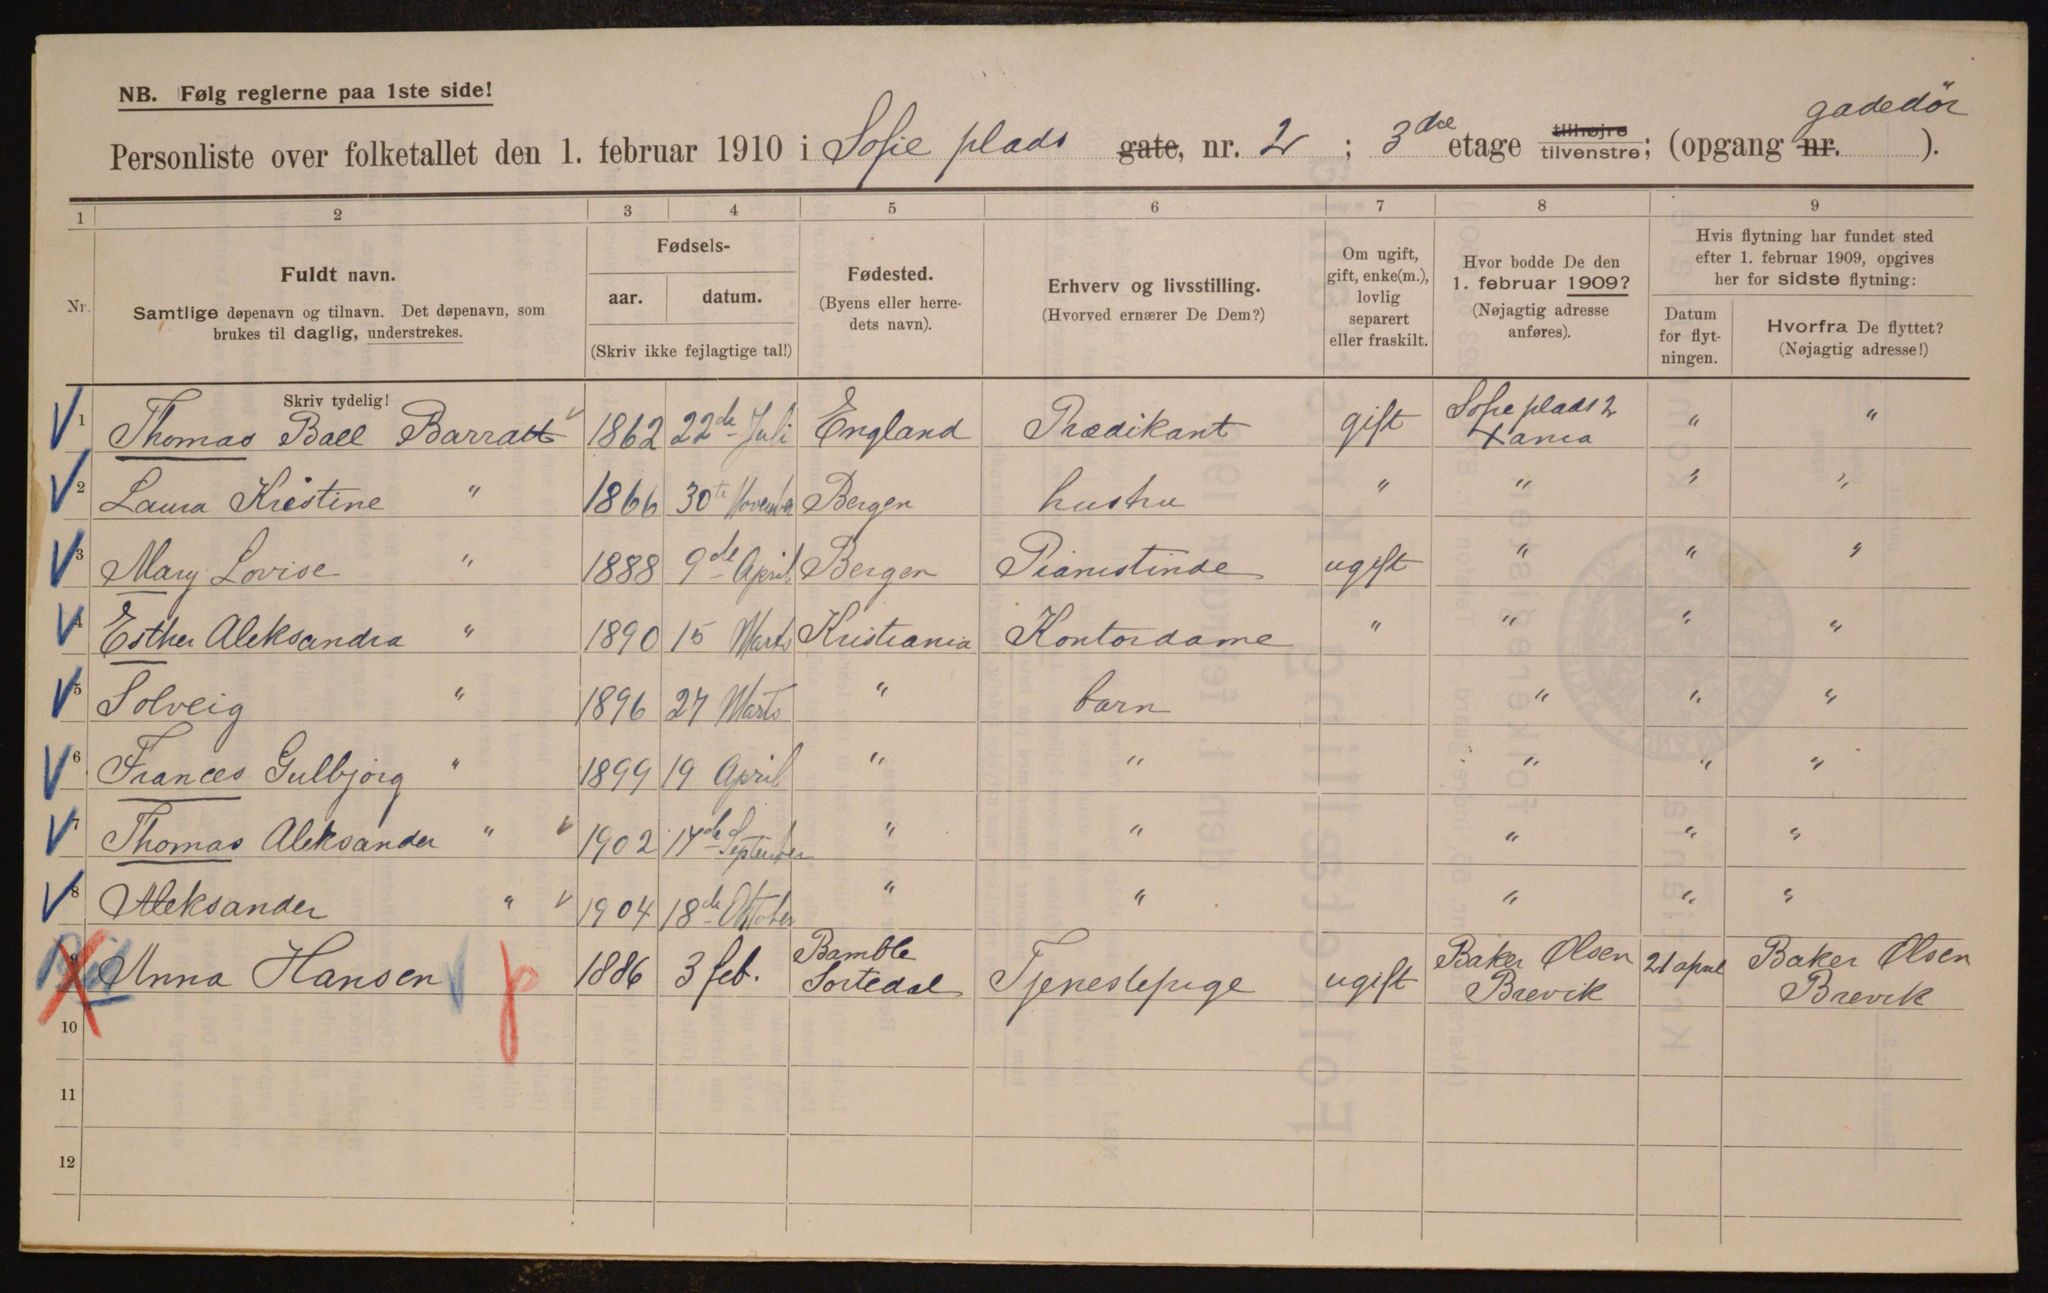 NB. Følg reglerne paa 1ste side!
gadedör
Personliste over folketallet den 1. februar 1910 i Sofie plads gate, nr. 2 ; 3 die etage tilhøjre tilvenstre; (opgang nr. ).
1 2 3 4 5 6 7 8 9
Nr.
Fuldt navn.
Samtlige døpenavn og tilnavn. Det døpenavn, som
brukes til daglig, understrekes.
Fødsels-
aar. datum.
(Skriv ikke fejlagtige tal!)
Fødested.
(Byens eller herre-
dets navn).
Erhverv og livsstilling.
(Hvorved ernærer De Dem?)
Om ugift,
gift, enke(m.),
lovlig
separert
eller fraskilt.
Hvor bodde De den
1. februar 1909?
(Nøjagtig adresse
anføres).
Hvis flytning har fundet sted
efter 1. februar 1909, opgives
her for sidste flytning:
Datum
for flyt-
ningen.
Hvorfra De flyttet?
(Nøjagtig adresse!)
Skriv tydelig!
1 Thomas Ball Barratt 1862 22de Juli England Prædikant gift Sofie plads 2 Xania " "
2 Laura Kristine " 1866 30te November Bergen hustru " " " "
3 Mary Lovise " 1888 9de April Bergen Pianistinde ugift " " "
4 Esther Aleksandra " 1890 15 Marts Kristiania Kontordame " " " "
5 Solveig " 1896 27 Marts " barn " " "
6 Frances Gulbjörg " 1899 19 April " " " " "
7 Thomas Aleksander " 1902 17de September " " " " "
8 Aleksander " 1904 18de Oktober " " " " "
9 Anna Hansen 1886 3 feb. Bamble Sortedal Tjenestepige ugift Baker Olsen Brevik 21 april Baker Olsen Brevik
10
11
12